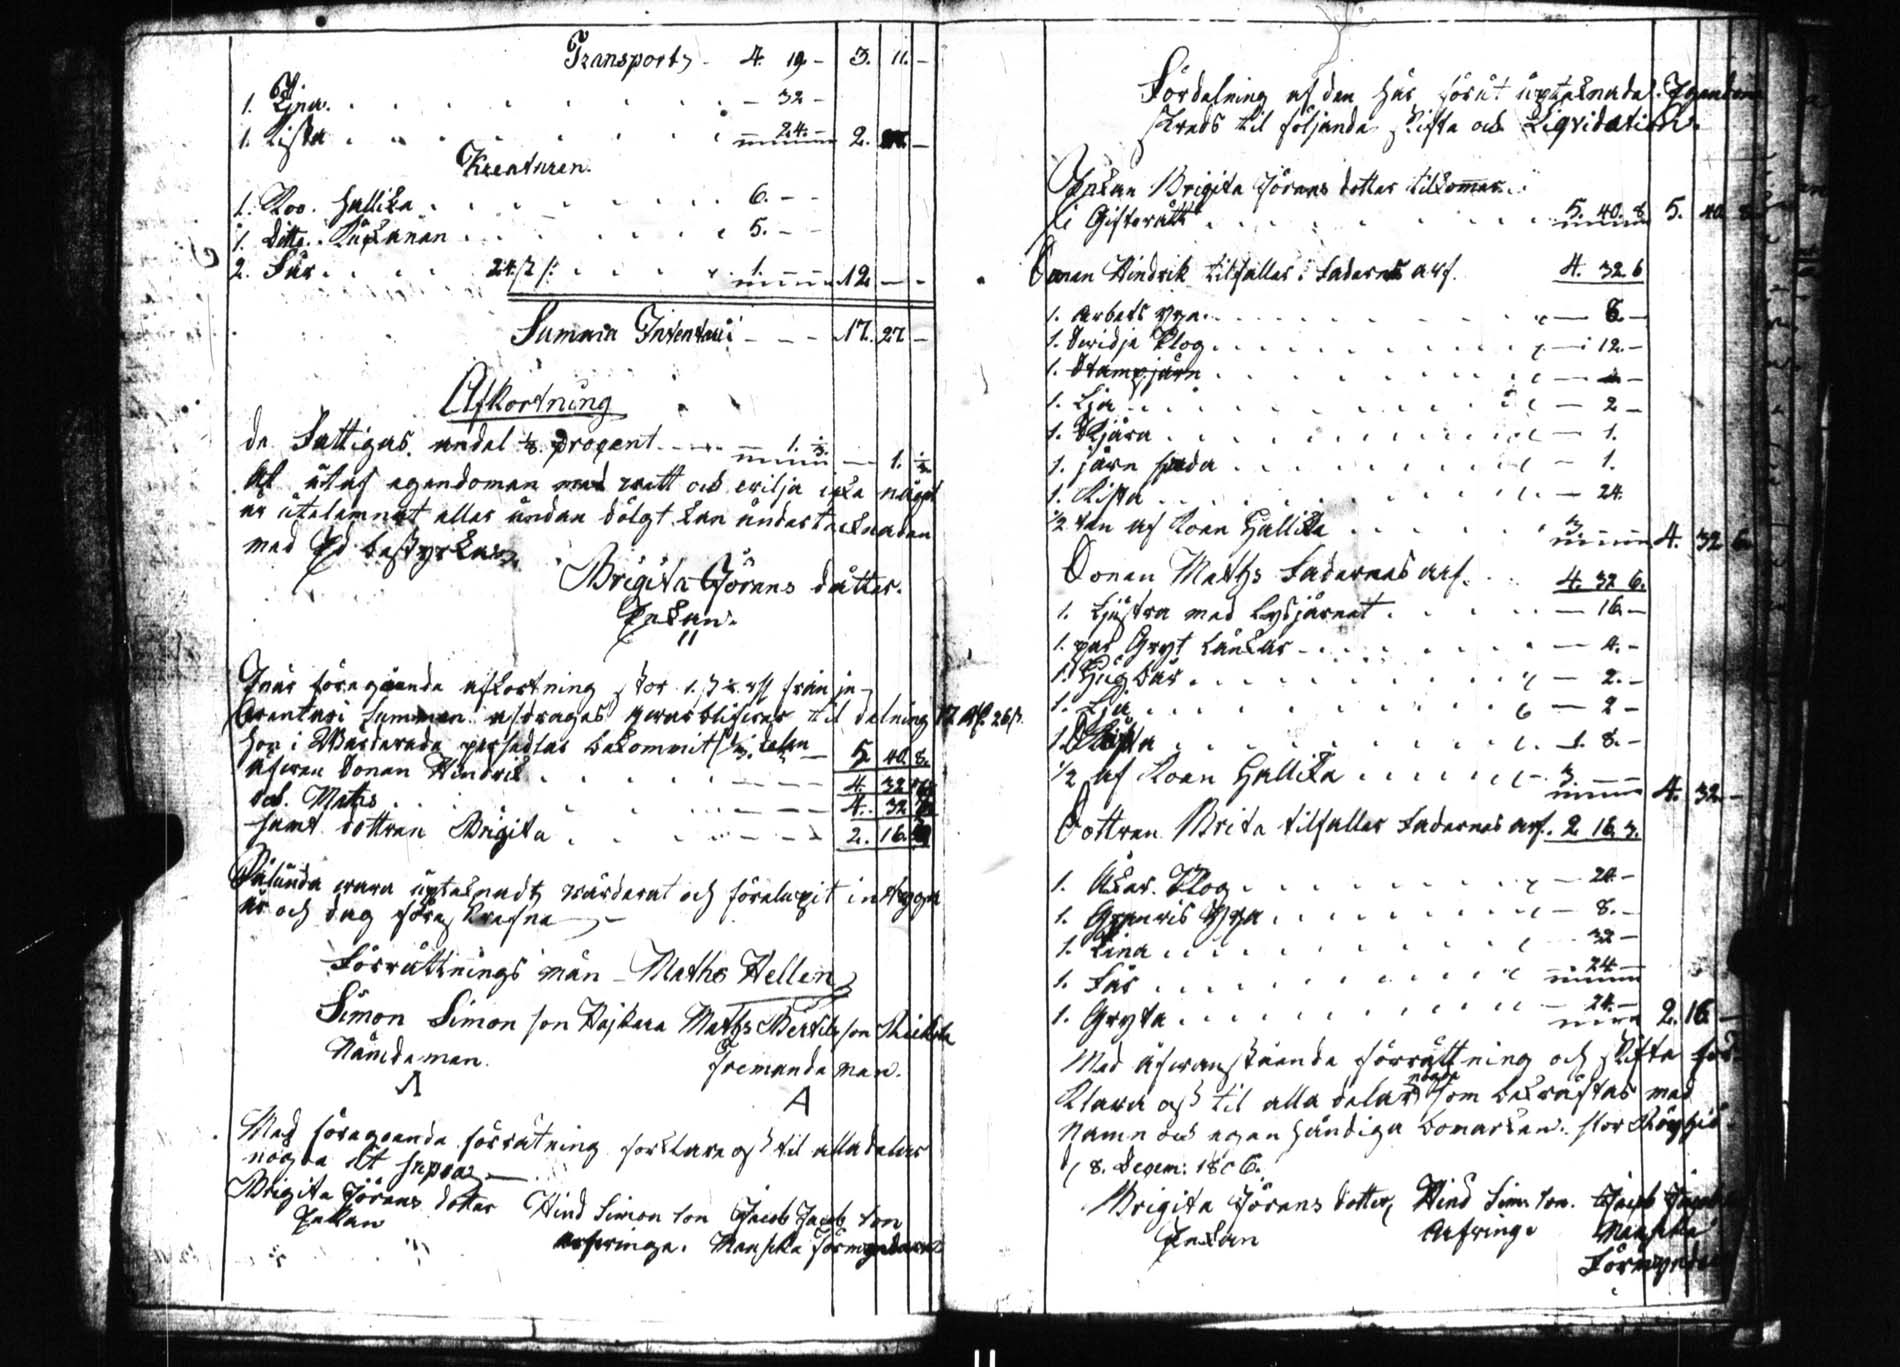 Transport 4. 19 - 3. 11. -
1. Lina - 32 -
1. Kista - 24. - 2.
Kreaturen.
1. Koo. Hallika 6. - -
1. Ditto 5. - -
2. Får 24 ß 1. 12. - -
Summa Inventarii - - - 17. 27 -
Afkortning
de Fattigas andel 1/8 procent 1. 1/3. - 1. 1/3
At utaf egendomen med wett och wilja icke något
är utelemnat eller undan dölgt kan undertecknaden
med Ed bestyrka
Brigita Jörans dotter.
Enkan.
När föregående afkortning stor från in-
ventarii summan afdrages hwarblifwer til delning 17 26 ß.
hon i Wärderade persedlar bekommit 1/3 delen - 5. 40. 8.
äfwen Sonen Hindrik - - - 4. 32
Mats - - - 4. 32
samt dottren Brigita - - 2. 16.
Sålunda wara uptecknadt wärderat och förelupit intygar
år och dag före skrefne
Förrättnings män Maths Hellen
Simon Simon son Hajkara Maths Bertils son
Nämdeman. Fremande man.
A
Med föregoende förrätning förklara oss til alla delar
nögda Ut supra
Brigita Jörans dotter Hind Simon son Jacob Jacob son
Enkan Arfwinge. Manska Förmyndare
Fördelning af den här förut uptecknade Egendom
skeds til följande skifte och Liqvidation.
Enkan Brigita Jörans dotter tilkommer
Gifterätt 5. 40. 8. 5. 40. 8
Sonen Hindrik tilfaller i Faderns arf. 4. 32. 6
1. Arbets yxa - 8. -
1. Plog - 12. -
1. Stampjärn
1. Lja - 2 -
1. Skjära - 1.
1. järn spada - 1.
1. Kista - 24.
1/2 ten af Koen Hallika 3. 4. 32 6
Sonen Maths Fadernes arf. 4. 32 6.
1. Ljustra med - 16. -
1. par Gryt länkar - 4. -
1. - 2. -
1. Lja - 2 -
1. Kista 1. 8. -
1/2 af Koen Hallika 3. 4. 32 -
Dottren Brita tilfaller Fadernes arf. 2. 16. 3.
1. Åker Plog - 24 -
1. yxa - 8. -
1. Lina 32 -
1. Får 24
1. Gryta 24. - 2. 16. -
Med äfwanstående förrättning och skifte för-
klara oss til alla delar nögda som bekräftas med
Namn och egen händiga bomärken. stor
d 8. Decem: 1806.
Brigita Jörans dotter, Hind Sim: son. Jacob
Enkan Arfwinge Manska
Förmyndare